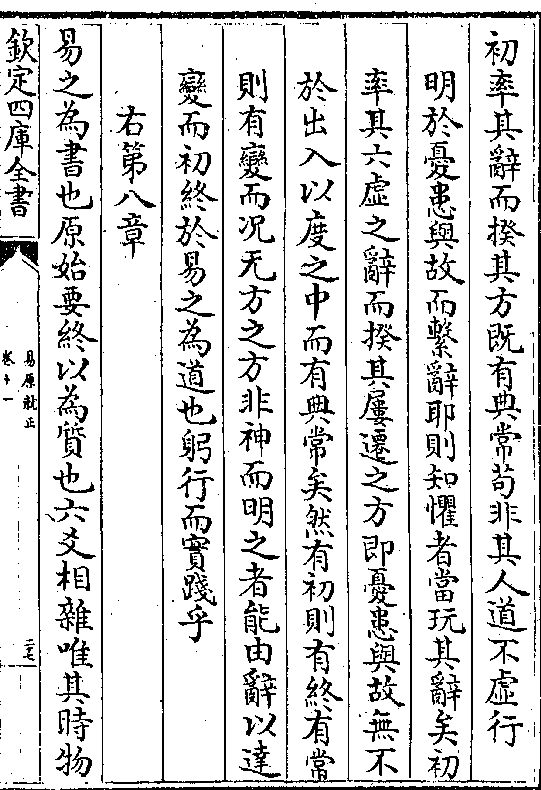 初率其辭而揆其方既有典常苟非其人道不虛行
明於憂患與故而繫辭耶則知懼者當玩其辭矣初
率其六虛之辭而揆其屢遷之方即憂患與故無不
於出入以度之中而有典常矣然有初則有終有常
則有變而况无方之方非神而明之者能由辭以達
變而初終於易之為道也躬行而實踐乎
右第八章
易之為書也原始要終以為質也六爻相雜唯其時物
欽定四庫全書
易原就正
卷十一
二七